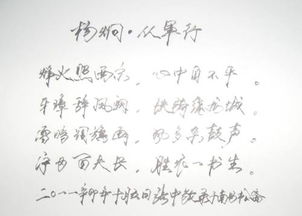 杨炯·从军行
烽火照西京,心中自不平。
牙璋辞凤阙,铁骑绕龙城。
雪暗凋旗画,风多杂鼓声。
宁为百夫长,胜作一书生。
二〇一一年